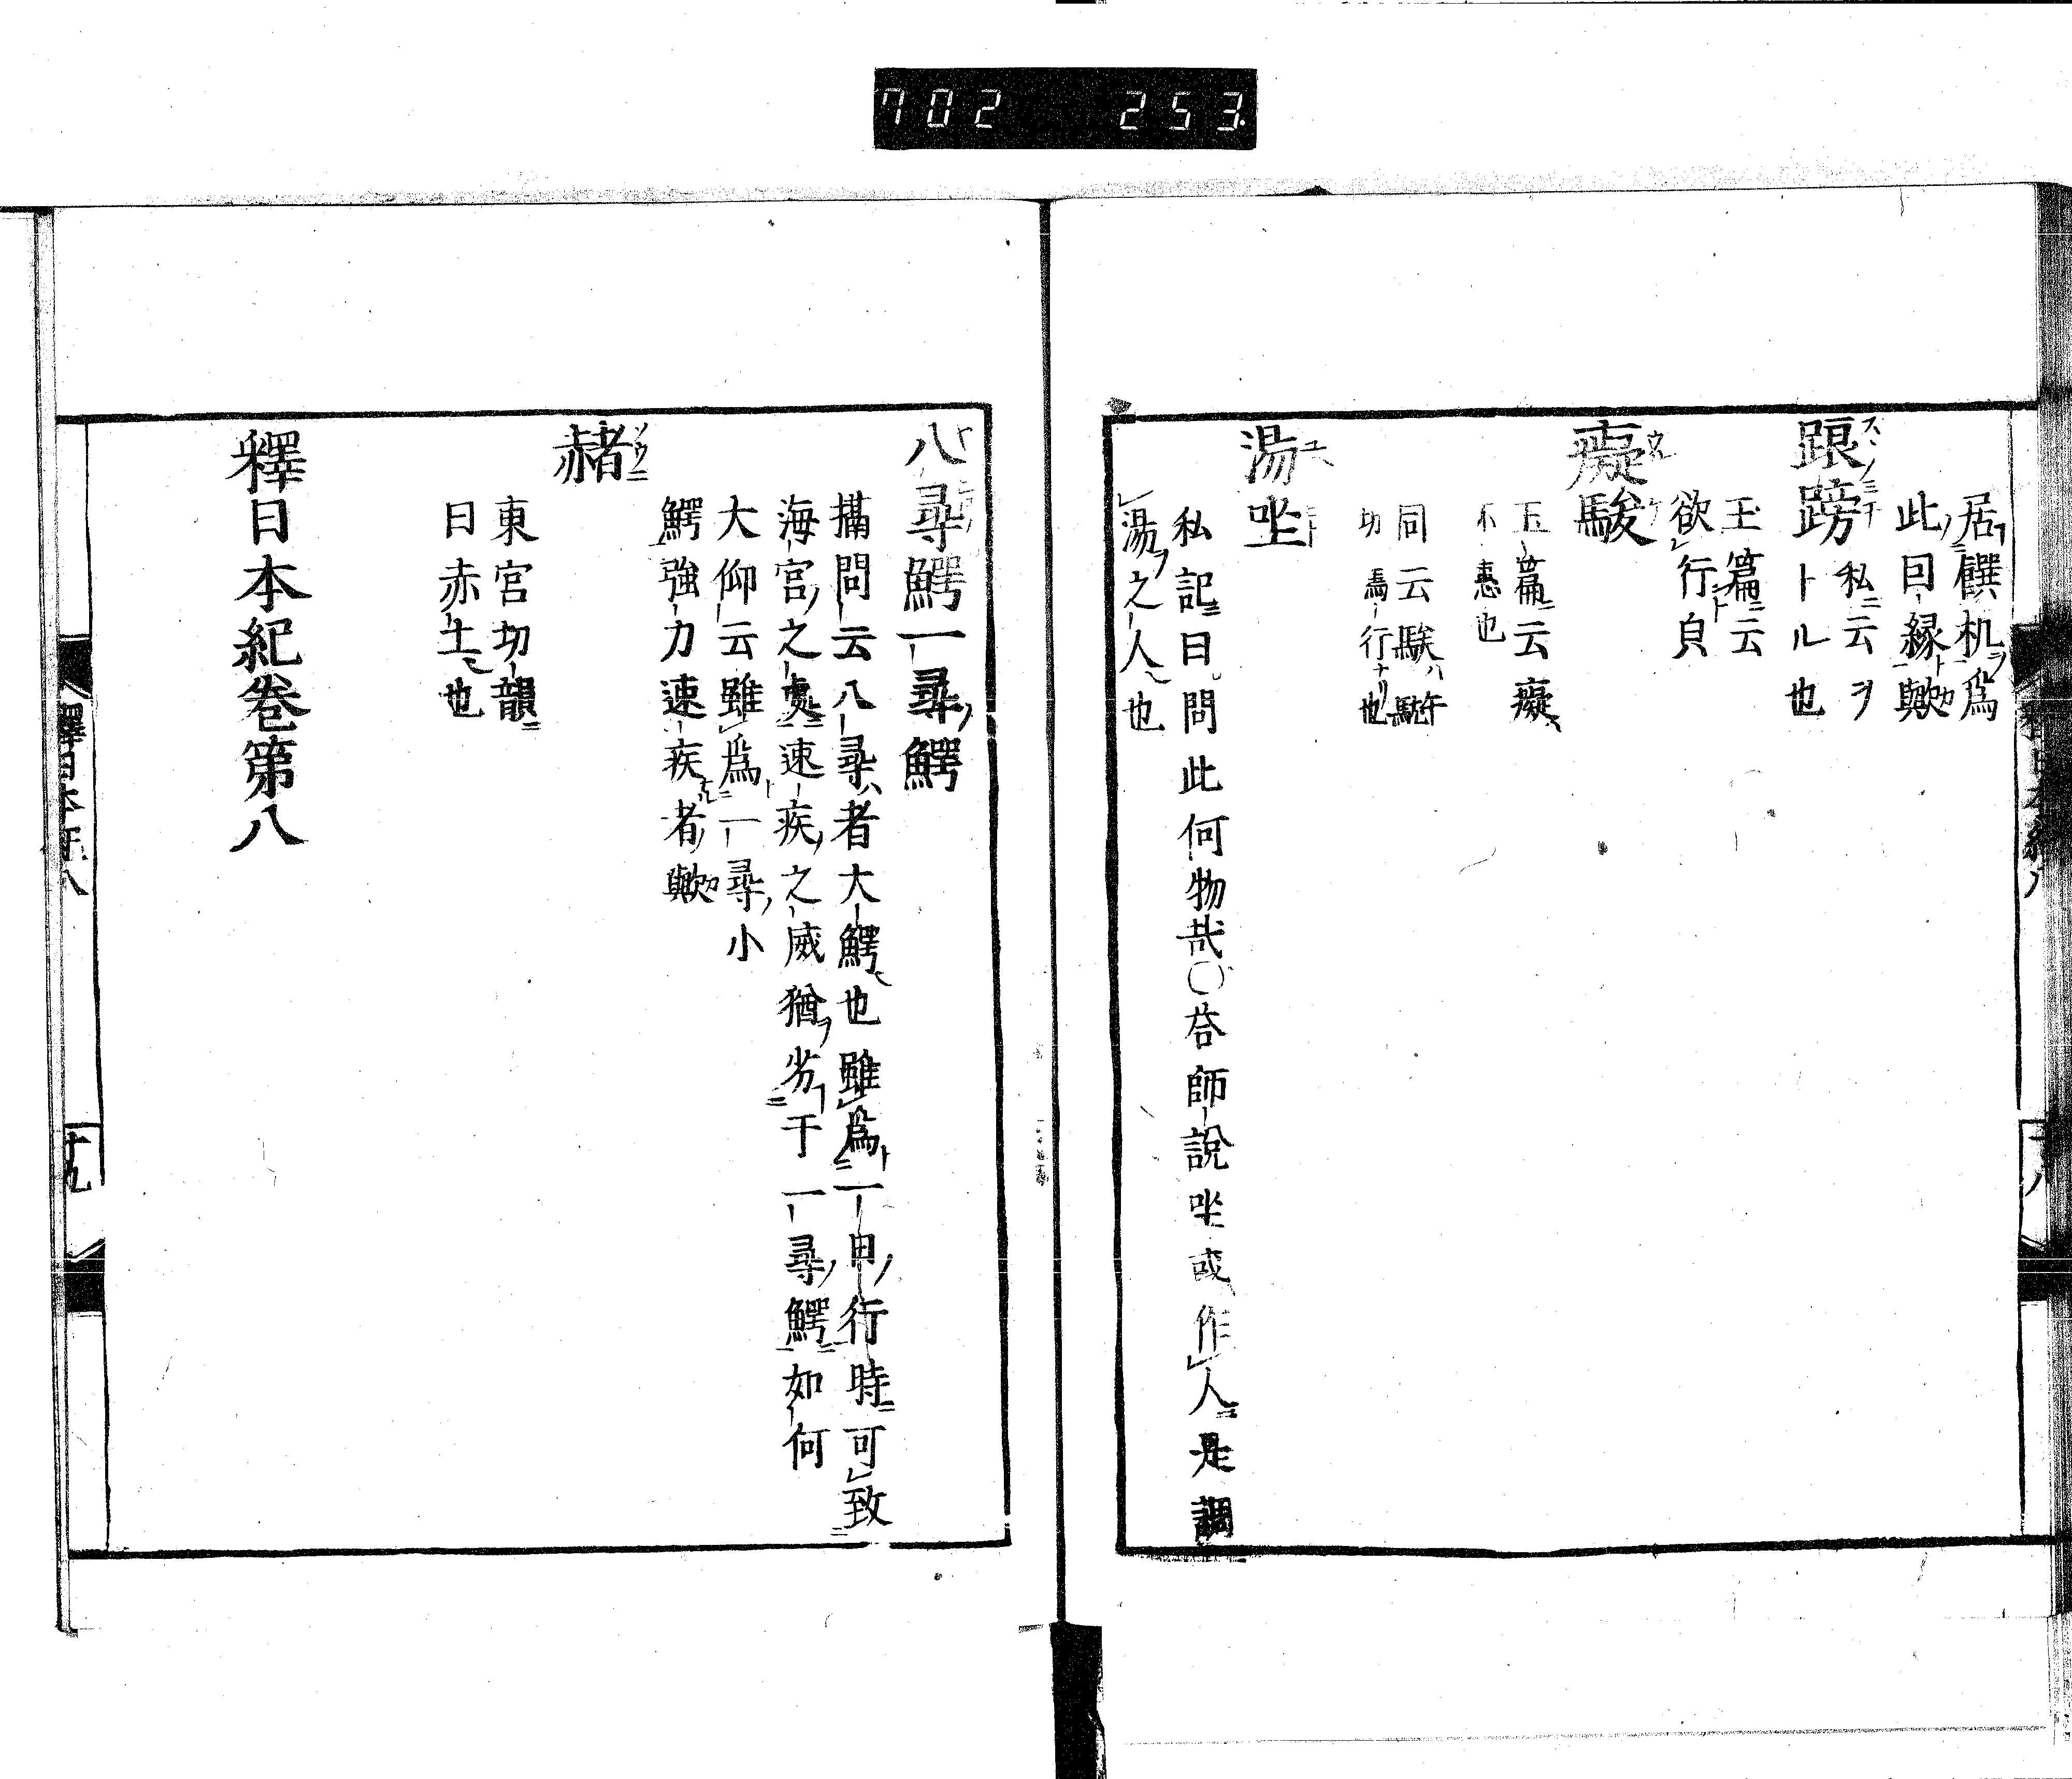 702 253
居饌机ヲ為
此因縁歟
踉䠙
私云ヲ
トル也
玉篇云
欲行㒵
癡騃
玉篇云癡
不惠也
同云騃午駭
切馬行也
湯坐
私記曰問此何物哉〇荅師說坐或作人是謂
湯之人也
八尋鰐一尋鰐
攝問云八尋者大鰐也雖為一日行時可致
海宮之處速疾之威猶劣于一尋鰐如何
大仰云雖為一尋小
鰐強力速疾者歟
赭
東宮切韻
曰赤土也
釋日本紀卷第八
十九